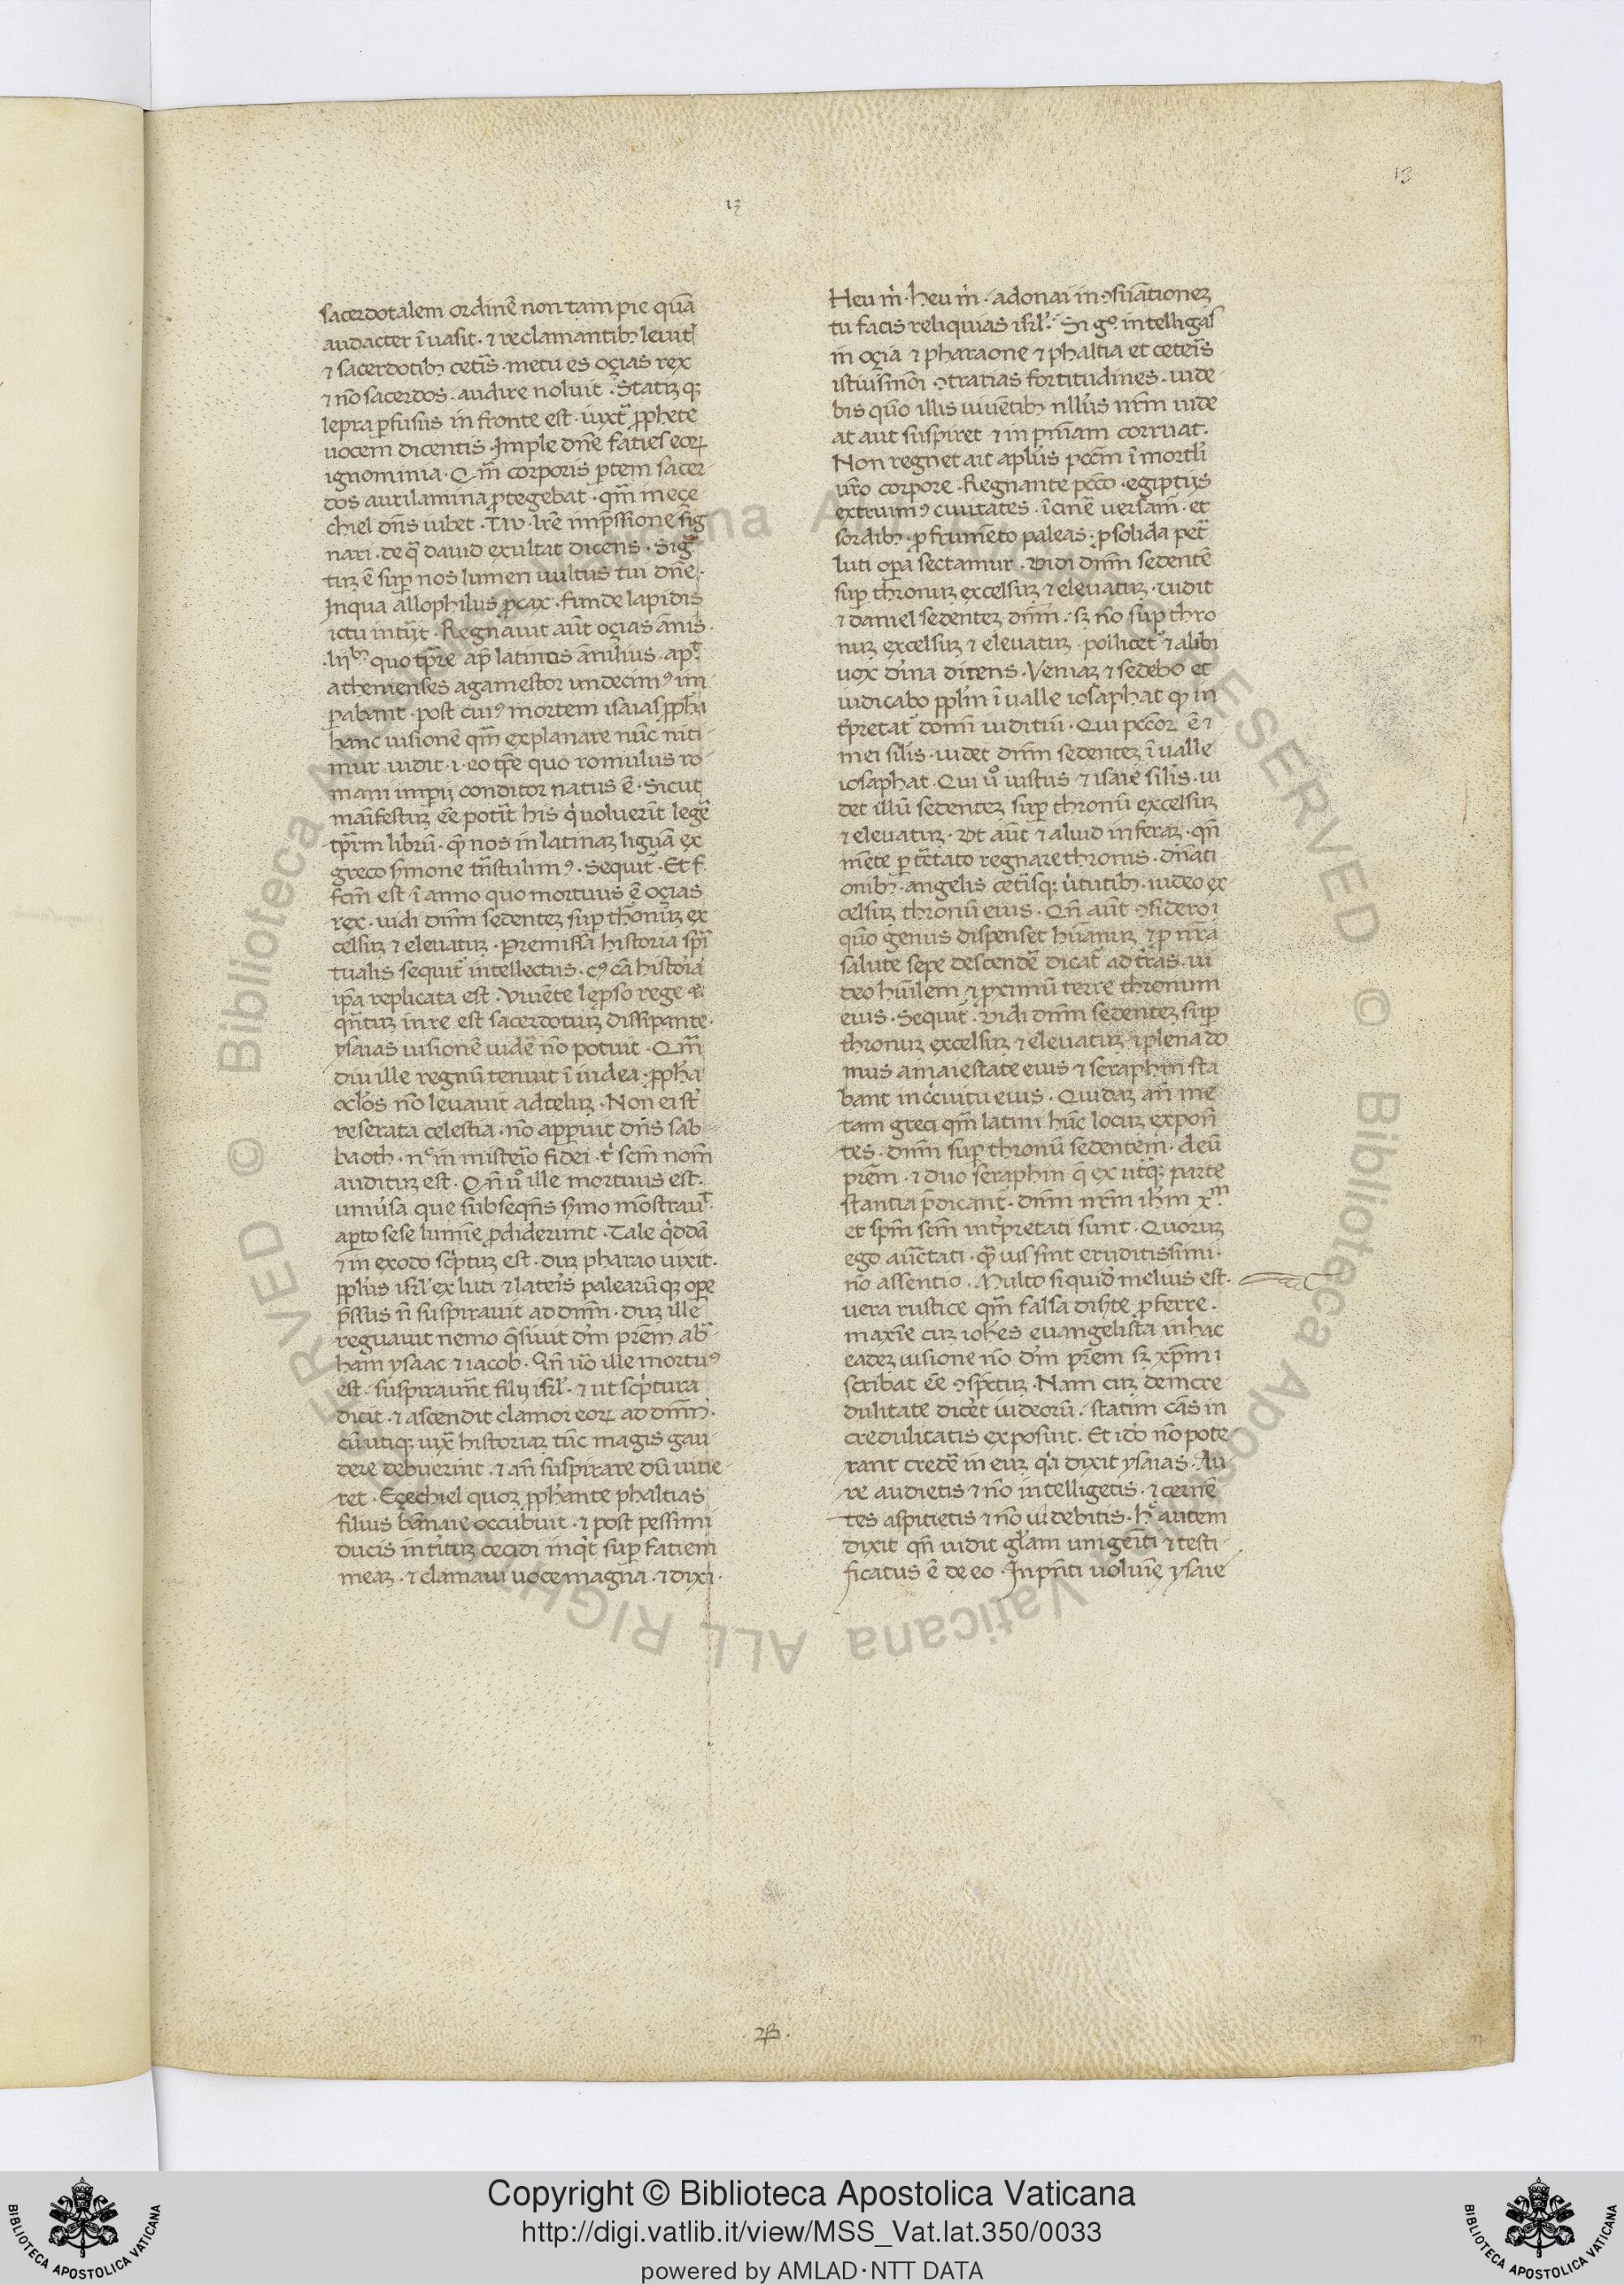 13
13
sacerdotalem ordinē non tam pie quā
audacter ī vasit · ⁊ reclamantibꝫ levit̄
⁊ sacerdotibꝫ cet̄is · metu es oçias rex
⁊ nō sacerdos · audire noluit · Statiꝫ qꝫ
lepra ꝑfusus in fronte est · iuxt̄ ꝓphete
vocem dicentis · Imple dn̄e faties eoꝝ
ignominia · Qm̄ corporis ꝑtem sacer
dos auri lamina ꝓtegebat · qm̄ in eçe
chiel dn̄s iubet · Tau · lr̄e imp̄ssione sig
nari · de q̄ david exultat dicens · Sig̅
tuꝫ ē suꝑ nos lumen vultus tui dn̄e ·
In qua allophilus ꝓcax · funde lapidis
ictu intijt · Regnavit aūt oçias ānis ·
·lijbꝫ quo tp̄re ap̄ latinos āmilius · ap̄
athenienses agamestor undecimꝰ im
ꝑabant · post cuiꝰ mortem isaias ꝓph̄a
hanc visionē qm̄ explanare nūc niti
mur vidit · i · eo tp̄e quo romulus ro
mani imꝑij conditor natus ē · Sicut
māifestuꝫ ēe potīt his q̇ voluerīt legē
tp̄rm librū · q̄ nos in latinaꝫ liguā ex
greco s̄mone tn̄stulimꝰ · Sequit̄ · Et f ·
fcm̄ est ī anno quo mortuus ē oçias
rex · vidi dnm̄ sedenteꝫ suꝑ thronuꝫ ex
celsuꝫ ⁊ elevatuꝫ · Premissa historia spī
tualis sequit̄ intellectus · cꝰ cā historia
ip̄a replicata est · Vivente lepso rege ⁊
qn̄tuꝫ in re est sacerdotuꝫ dissipante ·
ysaias visionē vidē nō potuit · Qm̄
diu ille regnū tenuit ī iudea · ꝓph̄a
oclōs nō levavit ad celuꝫ · Non ei st̄
reserata celestia · nō apꝑuit dn̄s sab
baoth · nc̄ in misterio fidei · t̓ scm̄ nom̄
audituꝫ est · Qn̄ v̊ ille mortuus est ·
univ̓sa que subseqn̄s s̄mo mōstravit̄ ·
aꝑto sese lumīe ꝓdiderunt · Tale q̇ddā
⁊ in exodo sc̓ptuꝫ est · duꝫ pharao vixit ·
ppl̄us isrl̄ ex luti ⁊ lateris palearūqꝫ oꝑe
p̄ssus n̄ suspiravit ad dnm̄ · duꝫ ille
regnavit nemo q̄sivit dm̄ prēm ab̄
ham ysaac ⁊ iacob · Qn̄ vō ille mortuꝰ
est · suspiravēt filij isrl̄ · ⁊ ut sc̓ptura
dicit · ⁊ ascendit clamor eoꝝ ad dnm̄ ·
cū utiqꝫ iux̄ historiaꝫ tūc magis gau
dere debuerint · ⁊ an̄ suspirare dū vive
ret · Eçechiel quoꝫ ꝓph̄ante phaltias
filius bānaie occubuit · ⁊ post pessimi
ducis int̓ituꝫ cecidi inq̇t suꝑ fatiem
meaꝫ · ⁊ clamavi voce magna · ⁊ dixi ·
Heu m̓ · heu m̓ · adonai in ꝯsūationeꝫ
tu facis reliquias isrl̄ · Si gͦ intelligas
in oçia ⁊ pharaone ⁊ phaltia et ceteris
istiusmōi ꝯtrarias fortitudines · vide
bis quō illis viventibꝫ nll̄us nrm̄ vide
at aut suspiret ⁊ in pn̄iam corruat ·
Non regnet ait apl̄us pccm̄ ī mortl̄i
vrō corpore · Regnante pccō · egiptijs
extruimꝰ civitates · ī cinē versam̄ · et
sordibꝫ · ꝓ frumēto paleas · ꝓ solida pet̄
luti oꝑa sectamur · Vidi dnm̄ sedentē
suꝑ thronuꝫ excelsuꝫ ⁊ elevatuꝫ · vidit
⁊ daniel sedenteꝫ dnm̄ · sꝫ nō suꝑ thro
nuꝫ excelsuꝫ ⁊ elevatuꝫ · pollicet̄ ⁊ alibi
vox dīna dicens · Veniaꝫ ⁊ sedebo et
iudicabo ppl̄m ī valle iosaphat qꝫ in
t̓pretat̄ domī iuditiū · Qui pctor ē ⁊
mei silis · videt dnm̄ sedenteꝫ ī valle
iosaphat · Qui v̊ iustus ⁊ isaie silis · vi
det illū sedenteꝫ suꝑ thronū excelsuꝫ
⁊ elevatuꝫ · Vt aūt ⁊ aliud inferaꝫ · qn̄
mēte ꝑ t̄ctato regnare thronis · dn̄ati
onibꝫ · angelis cet̄isqꝫ v̓tutibꝫ · video ex
celsuꝫ thronū eius · Qn̄ aūt ꝯsidero ·
quō genus dispenset hūanuꝫ ⁊ ꝓ nrā
salute sepe descendē dicat̄ ad t̄ras · vi
deo hūilem ⁊ ꝓximū terre thronum
eius · Sequit̄ · Vidi dnm̄ sedenteꝫ suꝑ
thronuꝫ excelsuꝫ ⁊ elevatuꝫ ⁊ plena do
mus a maiestate eius ⁊ seraphin sta
bant in c̓cuitu eius · Quidaꝫ an̄ me
tam greci qm̄ latini hūc locuꝫ exponē
tes · dnm̄ suꝑ thronū sedentem · deū
prēm · ⁊ duo seraphin q̄ ex ut̓qꝫ parte
stantia p̄dicant̄ · dnm̄ nrm̄ ih̄m xm̄ ·
et spm̄ scm̄ int̓pretati sunt · Quoruꝫ
ego auc̄tati · q̄vis sint eruditissimi ·
nō assentio · Multo siquidē melius est ·
vera rustice qm̄ falsa disꝑte ꝓferre ·
maxīe cuꝫ ioh̄es evangelista in hac
eadeꝫ visione nō dm̄ prēm sꝫ xpm̄ ·
scribat ēe ꝯspc̄tuꝫ · Nam cuꝫ de incre
dulitate dicēt iudeorū · statim cās in
credulitatis exposuit · Et idō nō pote
rant credē in euꝫ q̇a dixit ysaias · Au
re audietis ⁊ nō intelligetis · ⁊ cernē
tes aspitietis ⁊ nō videbitis · h̄ autem
dixit qn̄ vidit gl̄am unigeniti ⁊ testi
ficatus ē de eo · In pn̄ti voluīe ysaie
· 2B ·
Copyright © Biblioteca Apostolica Vaticana
http://digi.vatlib.it/view/MSS_Vat.lat.350/0033
powered by AMLAD·NTT DATA